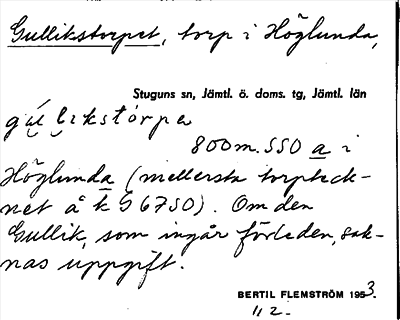 Gullikstorpet, torp i Höglunda,
Stuguns sn, Jämtl. ö. doms. tg, Jämtl. län
gúlikstórpa
800 m. SSO a i
Höglunda (mellersta torpteck-
net å k G 6750). Om den
Gullik, som ingår förleden, sak-
nas uppgift.
BERTIL FLEMSTRÖM 1953.
112.